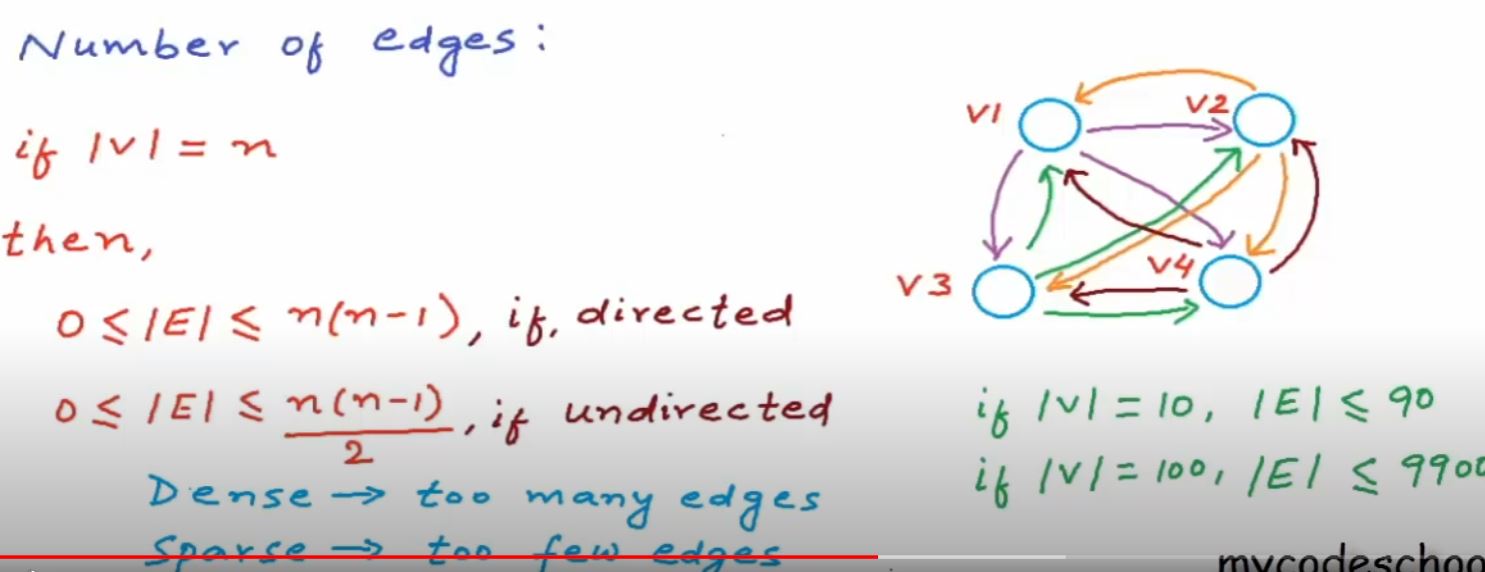 Number of edges:
if |V| = n
then,
0 ≤ |E| ≤ n(n-1), if, directed
0 ≤ |E| ≤ n(n-1)/2, if undirected
Dense → too many edges
Sparse → too few edges
V1
V2
V3
V4
if |V| = 10, |E| ≤ 90
if |V| = 100, |E| ≤ 9900
mycodeschoo